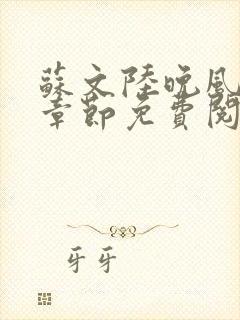 蘇文陸晚風
章節免費閱
牙牙